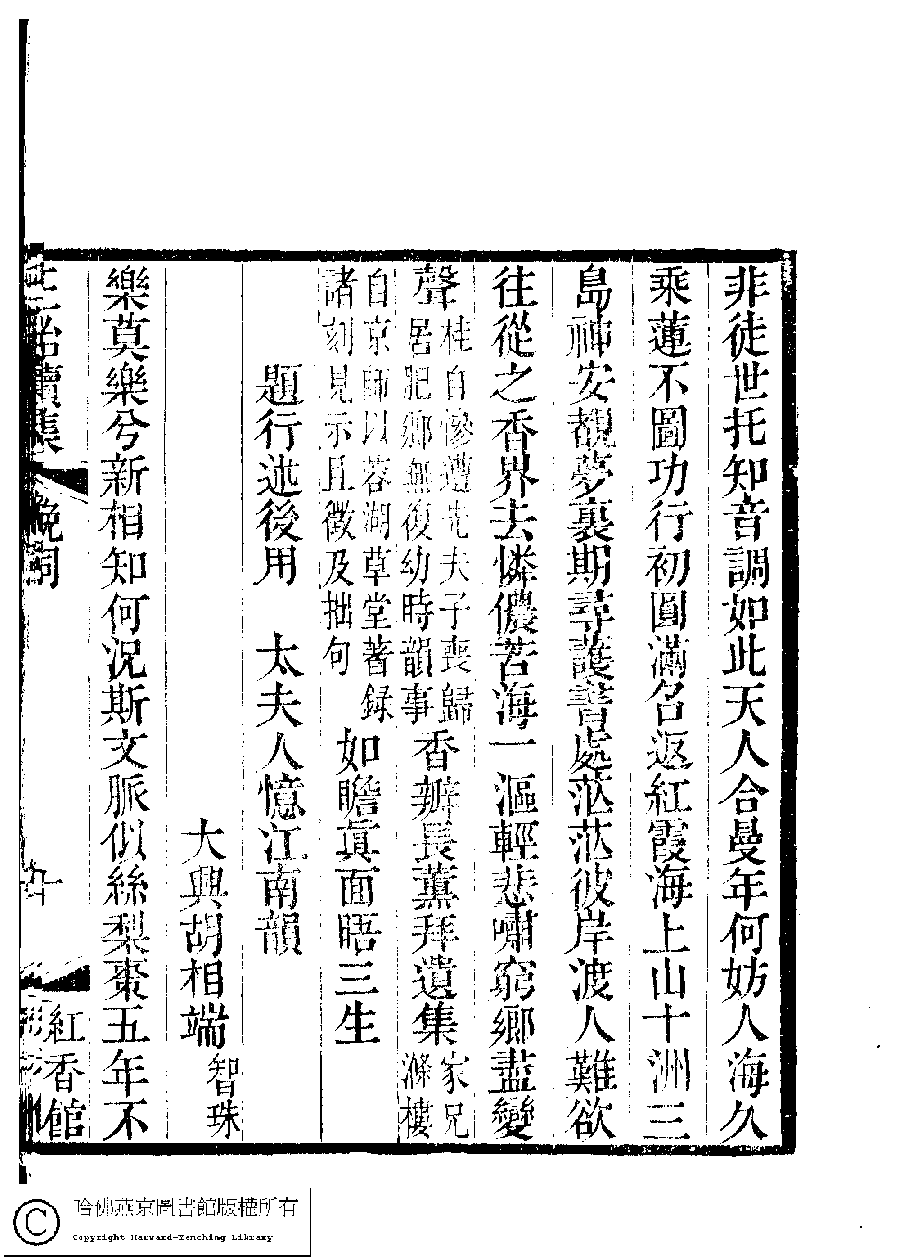 非徒世托知音調如此天人合曼年何妨人海久
乘蓮不圖功行初圓滿名返紅霞海上山十洲三
島神安覩夢裏期尋護書處茫茫彼岸渡人難欲
往從之香界去憐儂苦海一漚輕悲嘯窮鄉盡變
聲桂自慘遭先夫子喪歸
居肥鄉無復幼時韻事香瓣長薰拜遺集家兄
滌樓
自京師以蓉湖草堂著録
諸刻見示且徵及拙句如瞻眞面晤三生
題行述後用　太夫人憶江南韻
大興胡相端智珠
樂莫樂兮新相知何況斯文脈似絲梨棗五年不
續集
輓詞
十
紅香館
哈佛燕京圖書館版權所有
Copyright Harvard-Yenching Library